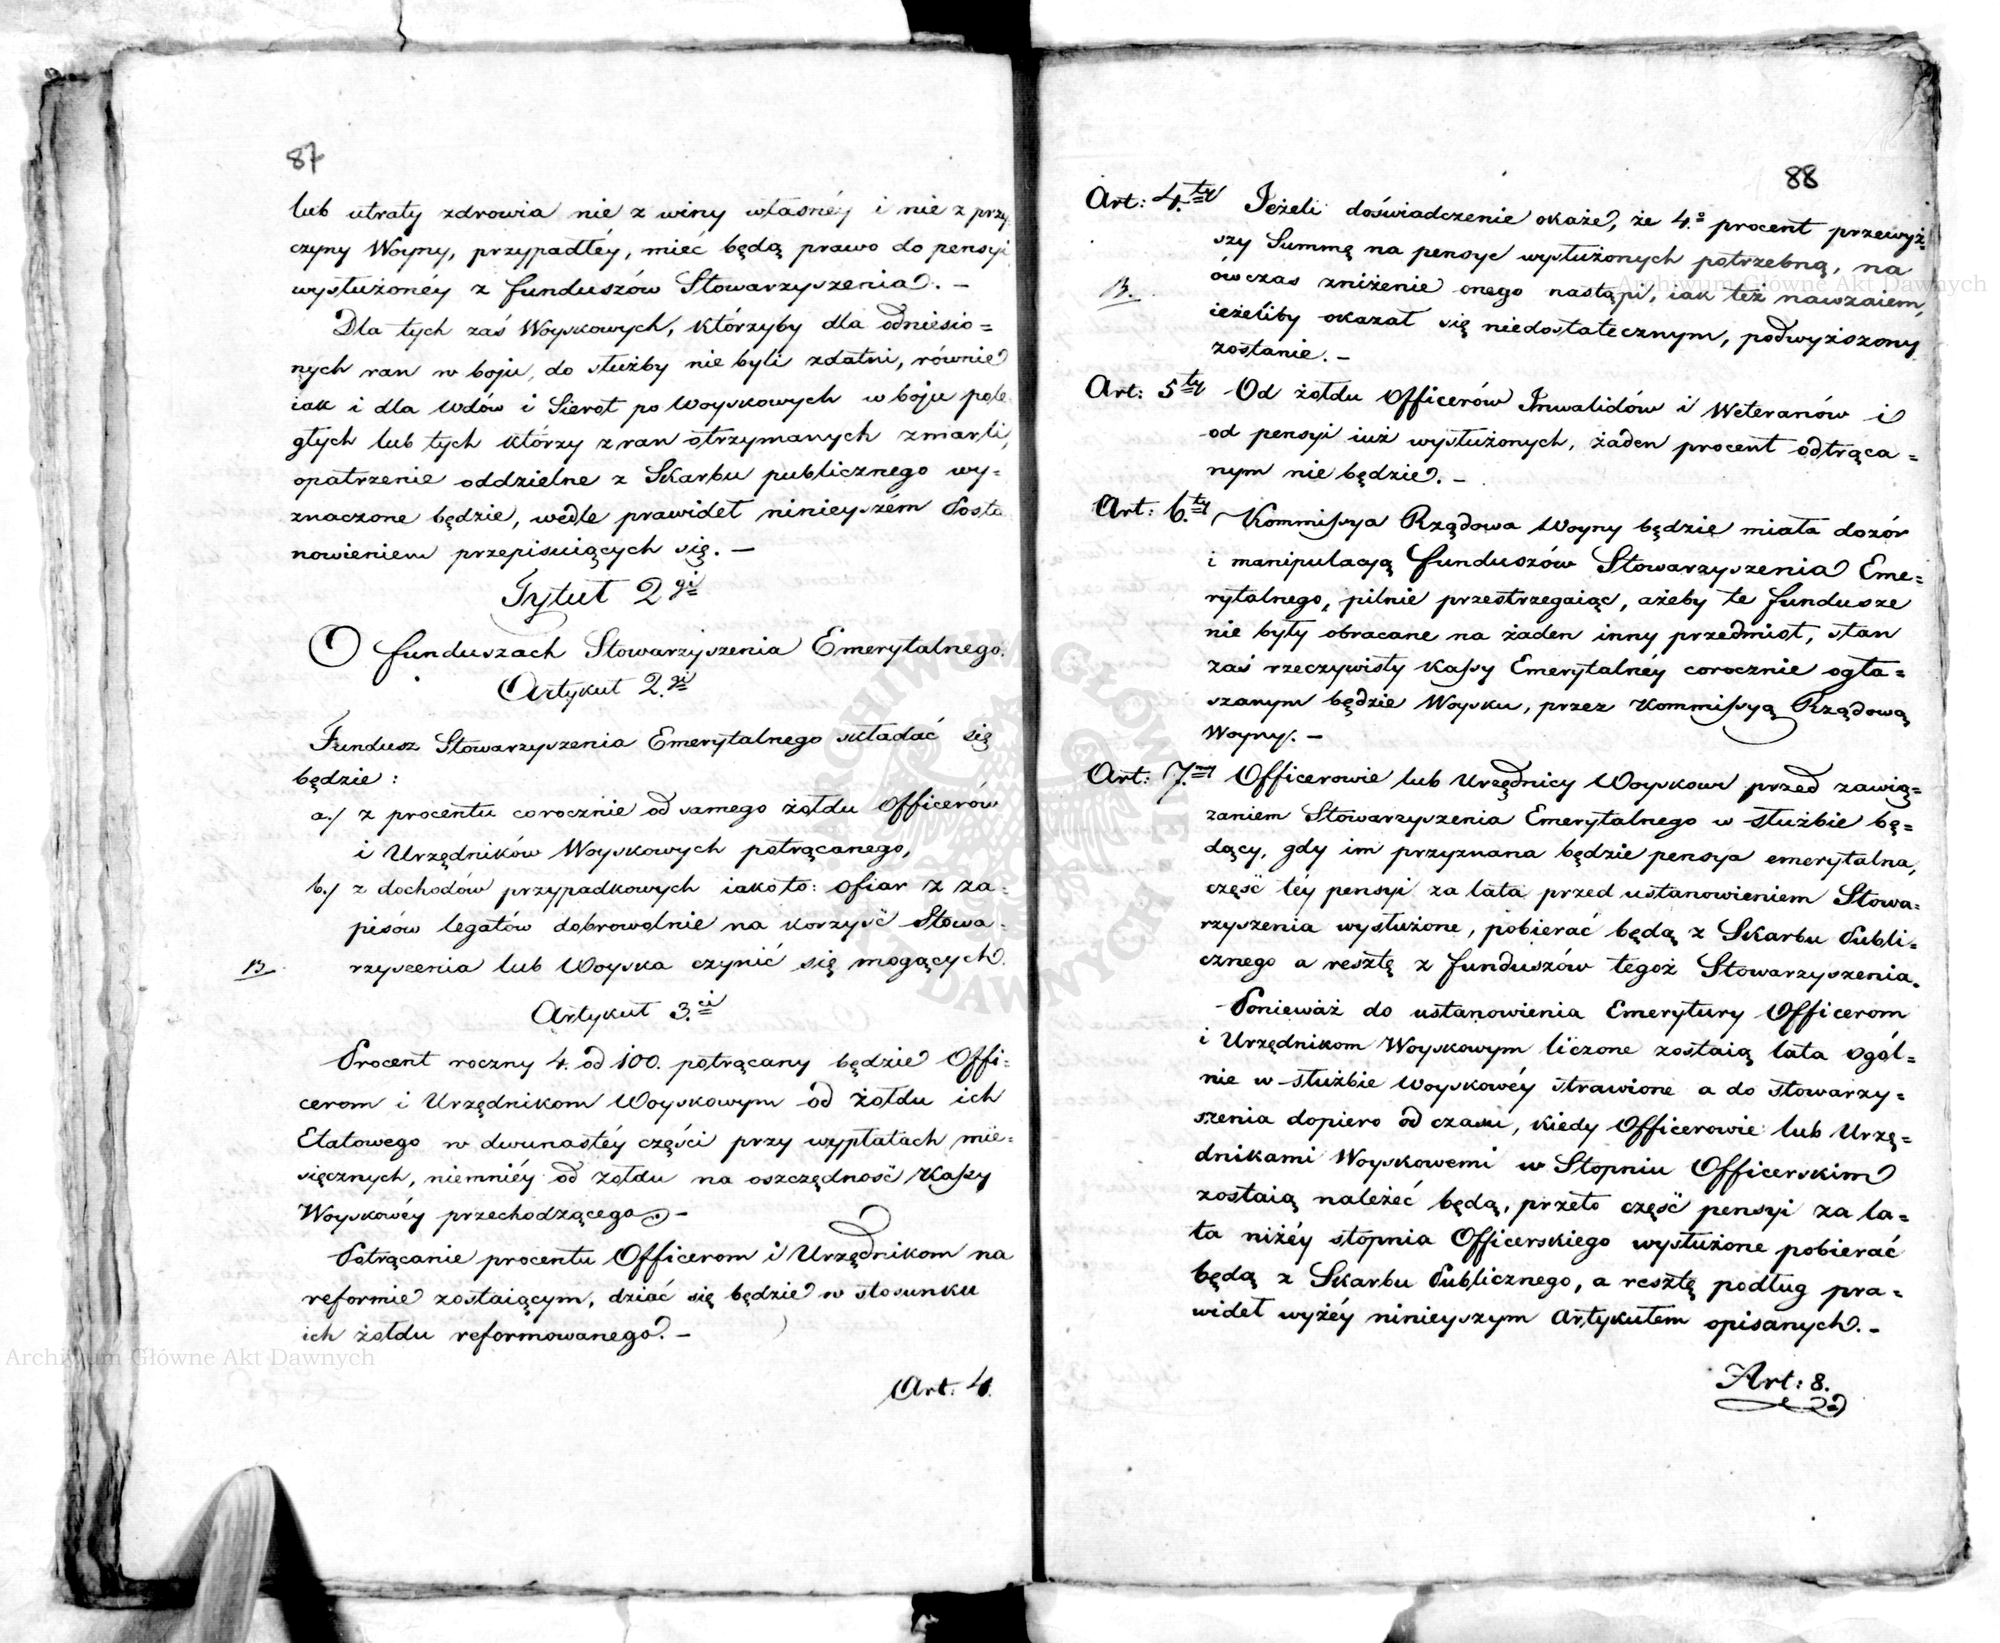 87
lub utraty zdrowia nie z winy własnéy i nie z przy
czyny Woyny, przypadłéy, mieć będą prawo do pensyi
wysłużonéy z funduszów Stowarzyszenia. –
Dla tych zaś Woyskowych, którzyby dla odniesio=
nych ran w boju, do służby nie byli zdatni, równie
iak i dla Wdów i Sierot po Woyskowych w boju pole
głych lub tych którzy z ran otrzymanych zmarli,
opatrzenie oddzielne z Skarbu publicznego wy=
znaczone będzie, wedle prawideł ninieyszém Posta
nowieniem przepisuiących się. –
Tytuł 2gi
O funduszach Stowarzyszenia Emerytalnego.
Artykuł 2.gi
Fundusz Stowarzyszenia Emerytalnego składać się
będzie:
a./ z procentu corocznie od samego żołdu Officerów
i Urzędników Woyskowych potrącanego,
b./ z dochodów przypadkowych iako to: ofiar z za=
pisów legatów dobrowolnie na korzyść Stowa=
rzyscenia lub Woyska czynić się mogących.
Artykuł 3.ci
Procent roczny 4. od 100. potrącany będzie Offi=
cerom i Urzędnikom Woyskowym od żołdu ich
Etatowego w dwunastéy części przy wypłatach mie=
sięcznych, niemniéy od żołdu na oszczędność Kassy
Woyskowéy przechodzącego. –
Potrącanie procentu Officerom i Urzędnikom na
reformie zostaiącym, dziać się będzie w stosunku
ich żołdu reformowanego. –
Art: 4.
88
Art: 4.ty Jeżeli doświadczenie okaże, że 4.o procent przewyż=
szy Summę na pensye wysłużonych potrzebną, na
ówczas zniżenie onego nastąpi, iak też nawzaiem,
ieżeliby okazał się niedostatecznym, podwyższony
zostanie. –
Art: 5ty Od żołdu Officerów Inwalidów i Weteranów i
od pensyi iuż wysłużonych, żaden procent odtrąca=
nym nie będzie. –
Art: 6.ty Kommissya Rządowa Woyny będzie miała dozór
i manipulacyą funduszów Stowarzyszenia Eme=
rytalnego, pilnie przestrzegaiąc, ażeby te fundusze
nie były obracane na żaden inny przedmiot, stan
zaś rzeczywisty Kassy Emerytalnéy corocznie ogła=
szanym będzie Woysku, przez Kommissyą Rządową
Woyny. –
Art: 7.my Officerowie lub Urzędnicy Woyskowi przed zawią=
zaniem Stowarzyszenia Emerytalnego w służbie bę=
dący, gdy im przyznana będzie pensya emerytalna,
część téy pensyi za lata przed ustanowieniem Stowa=
rzyszenia wysłużone, pobierać będą z Skarbu Publi=
cznego a resztę z funduszów tegoż Stowarzyszenia.
Ponieważ do ustanowienia Emerytury Officerom
i Urzędnikom Woyskowym liczone zostaią lata ogól=
nie w służbie Woyskowéy strawione a do stowarzy=
szenia dopiero od czasu, kiedy Officerowie lub Urzę=
dnikami Woyskowemi w Stopniu Officerskim
zostaią należeć będą, przeto część pensyi za la=
ta niżéy stopnia Officerskiego wysłużone pobierać
będą z Skarbu Publicznego, a resztę podług pra=
wideł wyżéy ninieyszym Artykułem opisanych. –
Art: 8.
Archiwum Główne Akt Dawnych
Archiwum Główne Akt Dawnych
ARCHIWUM GŁÓWNE AKT DAWNYCH